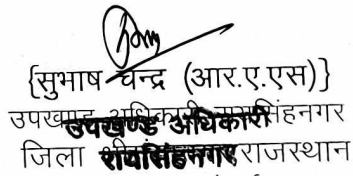 {सुभाष चन्द्र (आर.ए.एस)}
उपखण्ड अधिकारी रायसिंहनगर
उपखण्ड अधिकारी
जिला राजस्थान
रायसिंहनगर